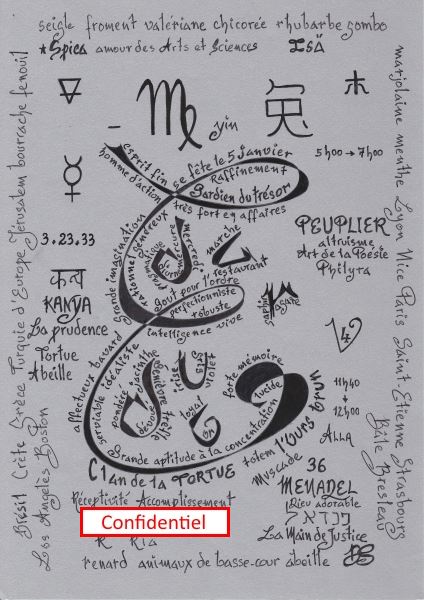 seigle froment valériane chicorée rhubarbe gombo
★Spica amour des Arts et Sciences
ISÄ
木
♍ yin
兔
esprit fin
homme d'action
se fête le 5 janvier
Raffinement
Gardien du trésor
très fort en affaires
5h00 → 7h00
marjolaine menthe Lyon Nice Paris Saint-Etienne Strasbourg
Bâle Breslau
Brésil Crète Grèce Turquie d'Europe Jérusalem bourrache fenouil
Los Angelès Boston
☿
3.23.33
कन्य
KANYA
La prudence
Tortue
Abeille
grande imagination
rationnel généreux
mercredi
mercure
marche
restaurant
Goût pour l'ordre
perfectionniste
robuste
intelligence vive
saphir
agate
PEUPLIER
altruisme
Art de la Poésie
Philyra
affectueux bavard
serviable idéaliste
pondéré
jacinthe
dévoué
trèfle
loyal
gris
violet
forte mémoire
lucide
Grande aptitude à la concentration
Clan de la TORTUE
totem l'Ours Brun
Muscade
11h40
→
12h00
ALLA
36
MENADEL
Dieu adorable
מנדאל
La Main de Justice
Réceptivité Accomplissement
Confidentiel
renard animaux de basse-cour abeille